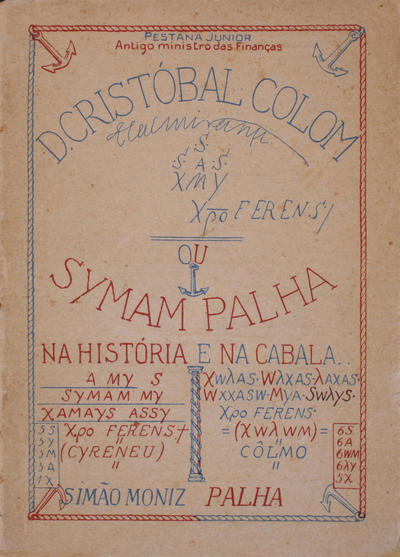 PESTANA JUNIOR
Antigo ministro das Finanças
D. CRISTÓBAL COLOM
.S.
.S. A .S.
X M Y
Xpo FERENS/
OU
SYMAM PALHA
NA HISTÓRIA E NA CABALA..
A MY S
SYMAM MY
XAMAYS ASSY
Xpo FERENS+
(CYRENEU) "
"
5S
5Y
5M
5A
1X
XωλAS· WλXAS·λAXAS·
WXXASW·MYA·SWλYS·
Xpo FERENS·
=(XWλWM)=
"
CÔLMO
"
6S
6A
6WM
6λY
5X
SIMÃO MONIZ PALHA